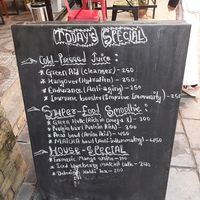 TODAY'S SPECIAL
Cold-Pressed Juice:
* Green Aid (Cleanser) - 250
* Hangover (Hydrating) - 250
* Endurance (Anti-aging) - 250
* Immune booster (Improve Immunity) - 250
Super-Food Smoothie:
* Green (Rich in Omega 3) - 300
* Protein bar (Protein Rich) - 300
* Acai bowl (Amino Acid) - 450
* MATCHA bowl (Anti-inflammatory) - 450
House-Special
* Turmeric Mango - 200
* Iced MATCHA Latte - 240
* Haldi Tea - 200